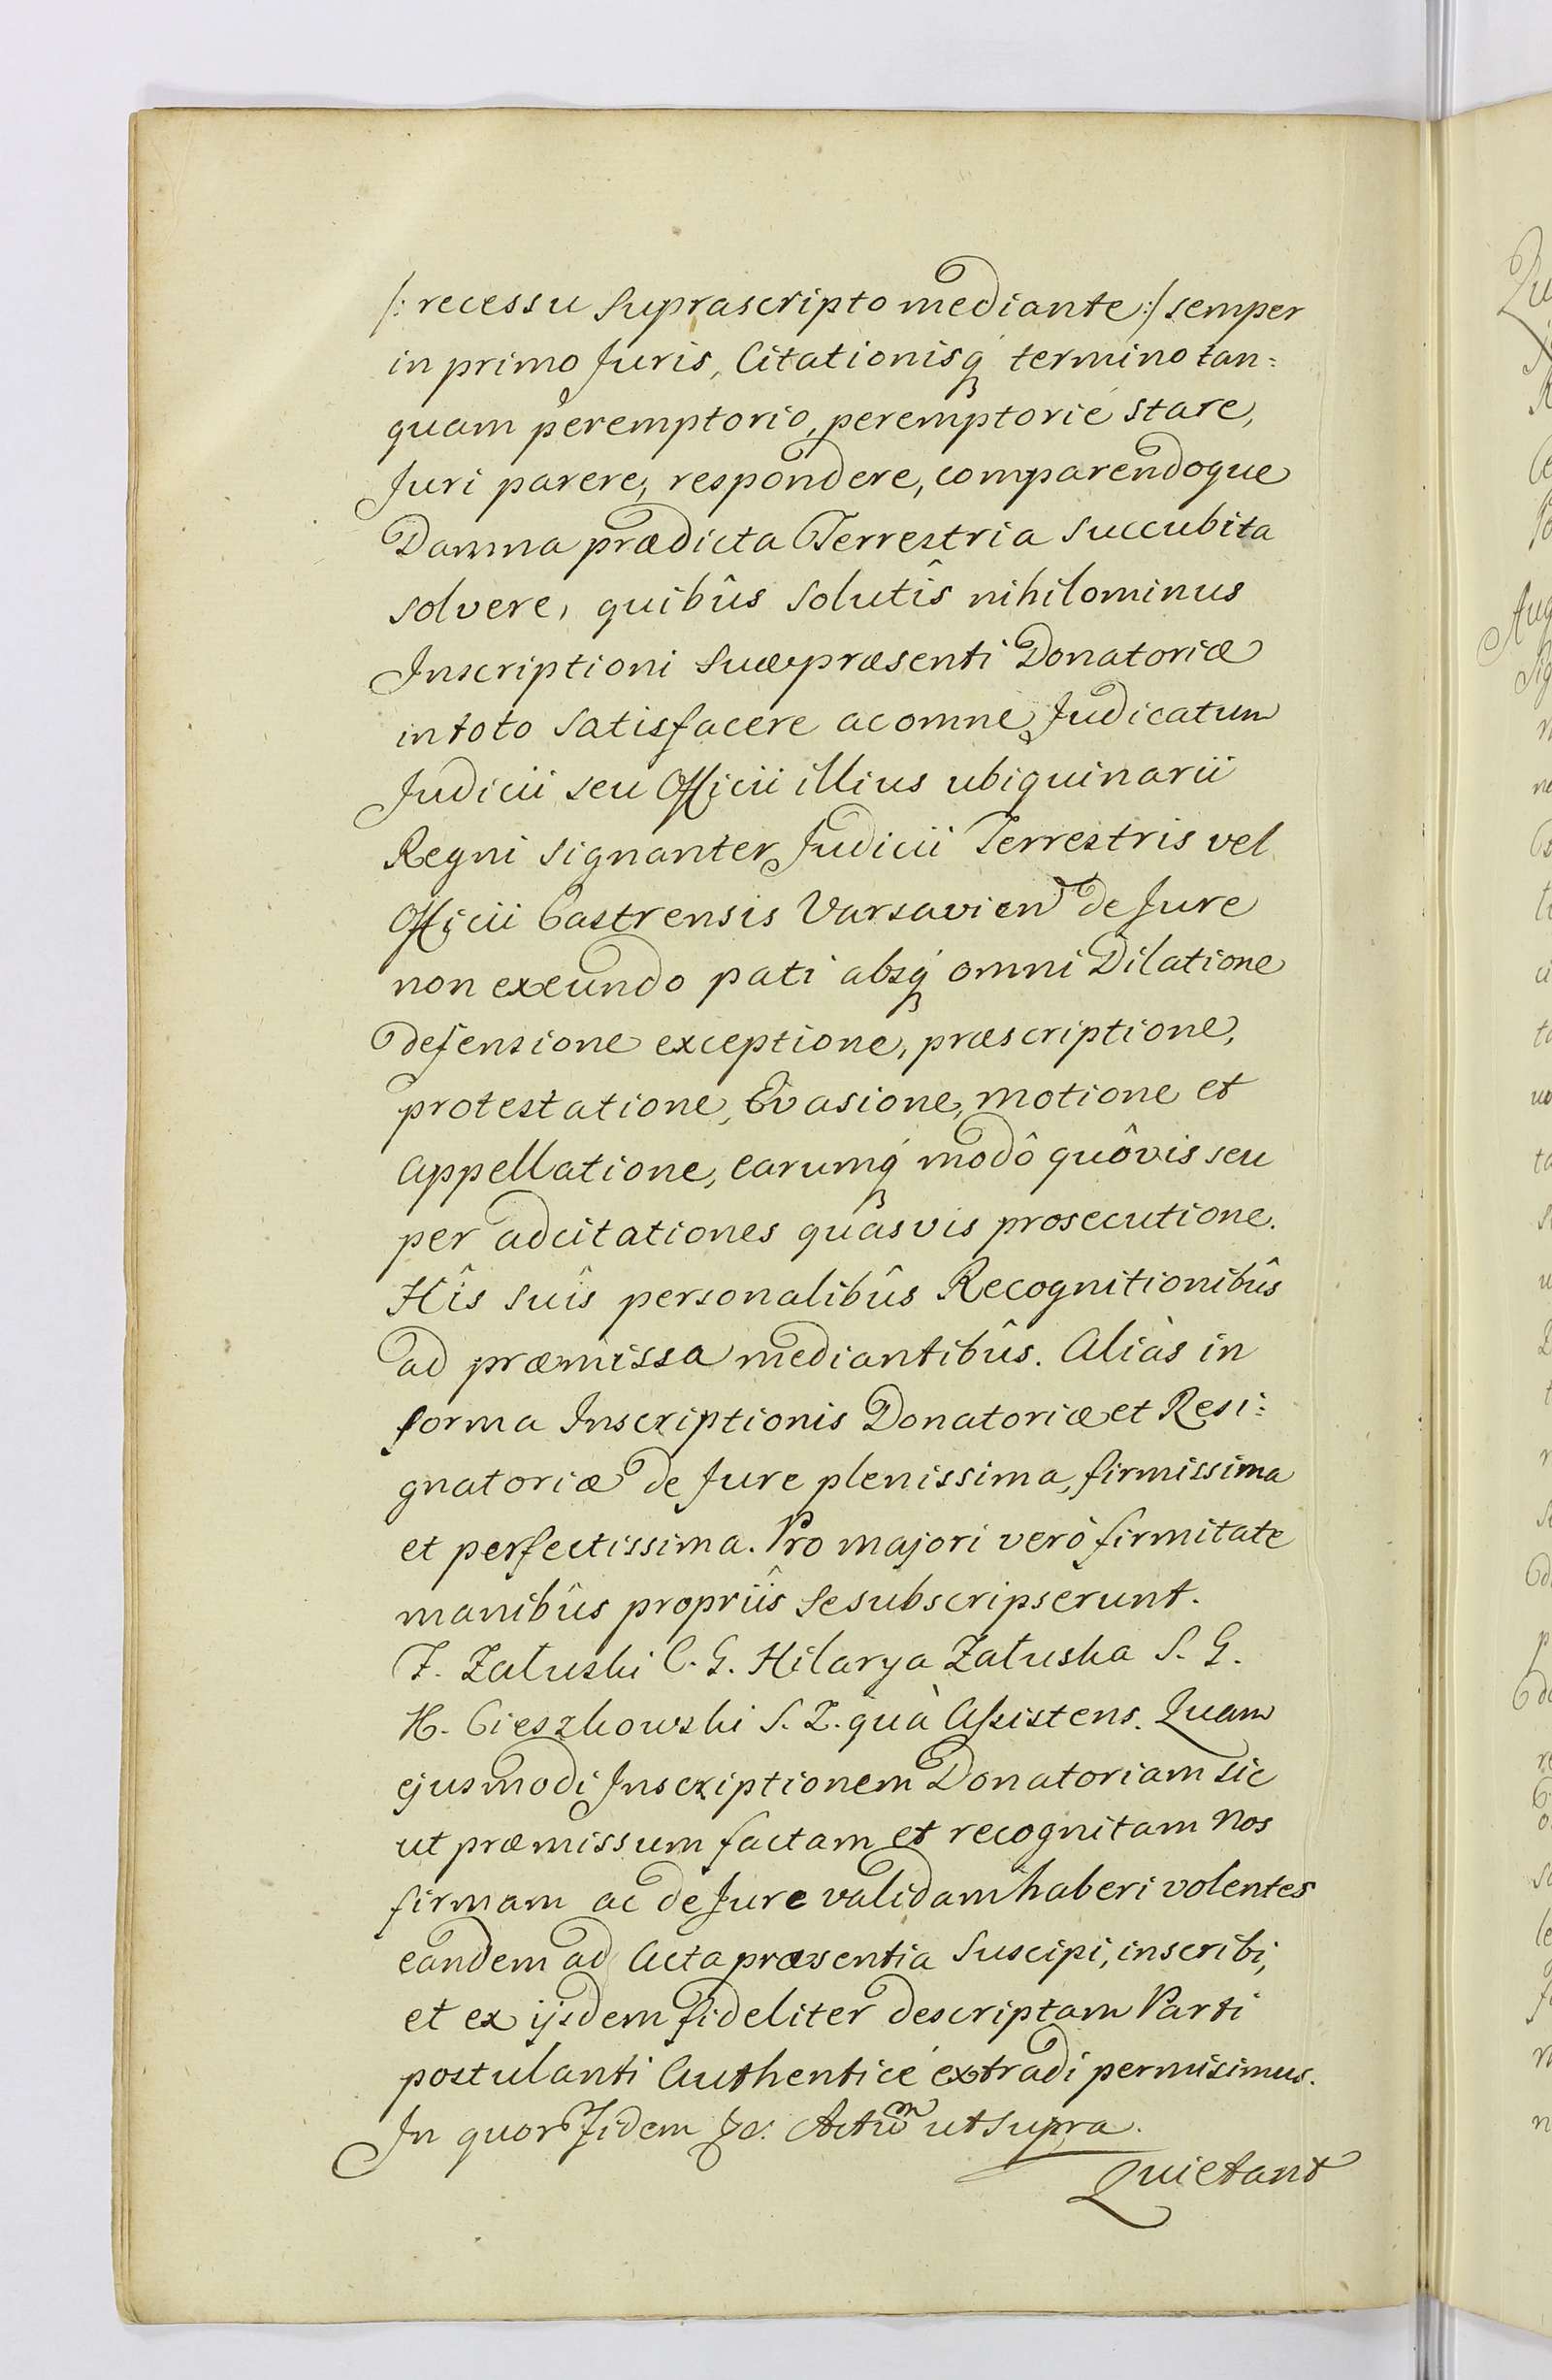 /: recessu suprascripto mediante :/ semper
in primo Juris, Citationisq́ termino tan=
quam peremptorio, peremptorié stare,
Juri parere, respondere, comparendoque
Damna prædicta Terrestria succubita
solvere, quibûs solutîs nihilominus
Inscriptioni suæ præsenti Donatoriæ
in toto satisfacere ac omne Judicatum
Judicii seu Officii illius ubiquinarii
Regni signanter Judicii Terrestris vel
Officii Castrensis Varsavien de Jure
non exeundo pati absq́ omni Dilatione
defensione exceptione, præscriptione,
protestatione, Evasione, motione et
Appellatione, earumq́ modô quôvis seu
per adcitationes quasvis prosecutione.
Hîs suîs personalibûs Recognitionibûs
ad præmissa mediantibûs. Aliàs in
forma Inscriptionis Donatoriæ et Resi=
gnatoriæ de Jure plenissima, firmissima
et perfectissima. Pro majori verò firmitate
manibûs propriîs se subscripserunt.
F. Załuski C. G. Hilarya Załuska S. G.
H. Cieszkowski S. Z. quà Assistens. Quam
ejusmodi Inscriptionem Donatoriam sic
ut præmissum factam et recognitam Nos
firmam ac de Jure validam haberi volentes
eandem ad Acta præsentia suscipi, inscribi,
et ex ijsdem fideliter descriptam Parti
postulanti Authenticé extradi permisimus.
In quor Fidem &c. Actũm ut supra.
Quietant